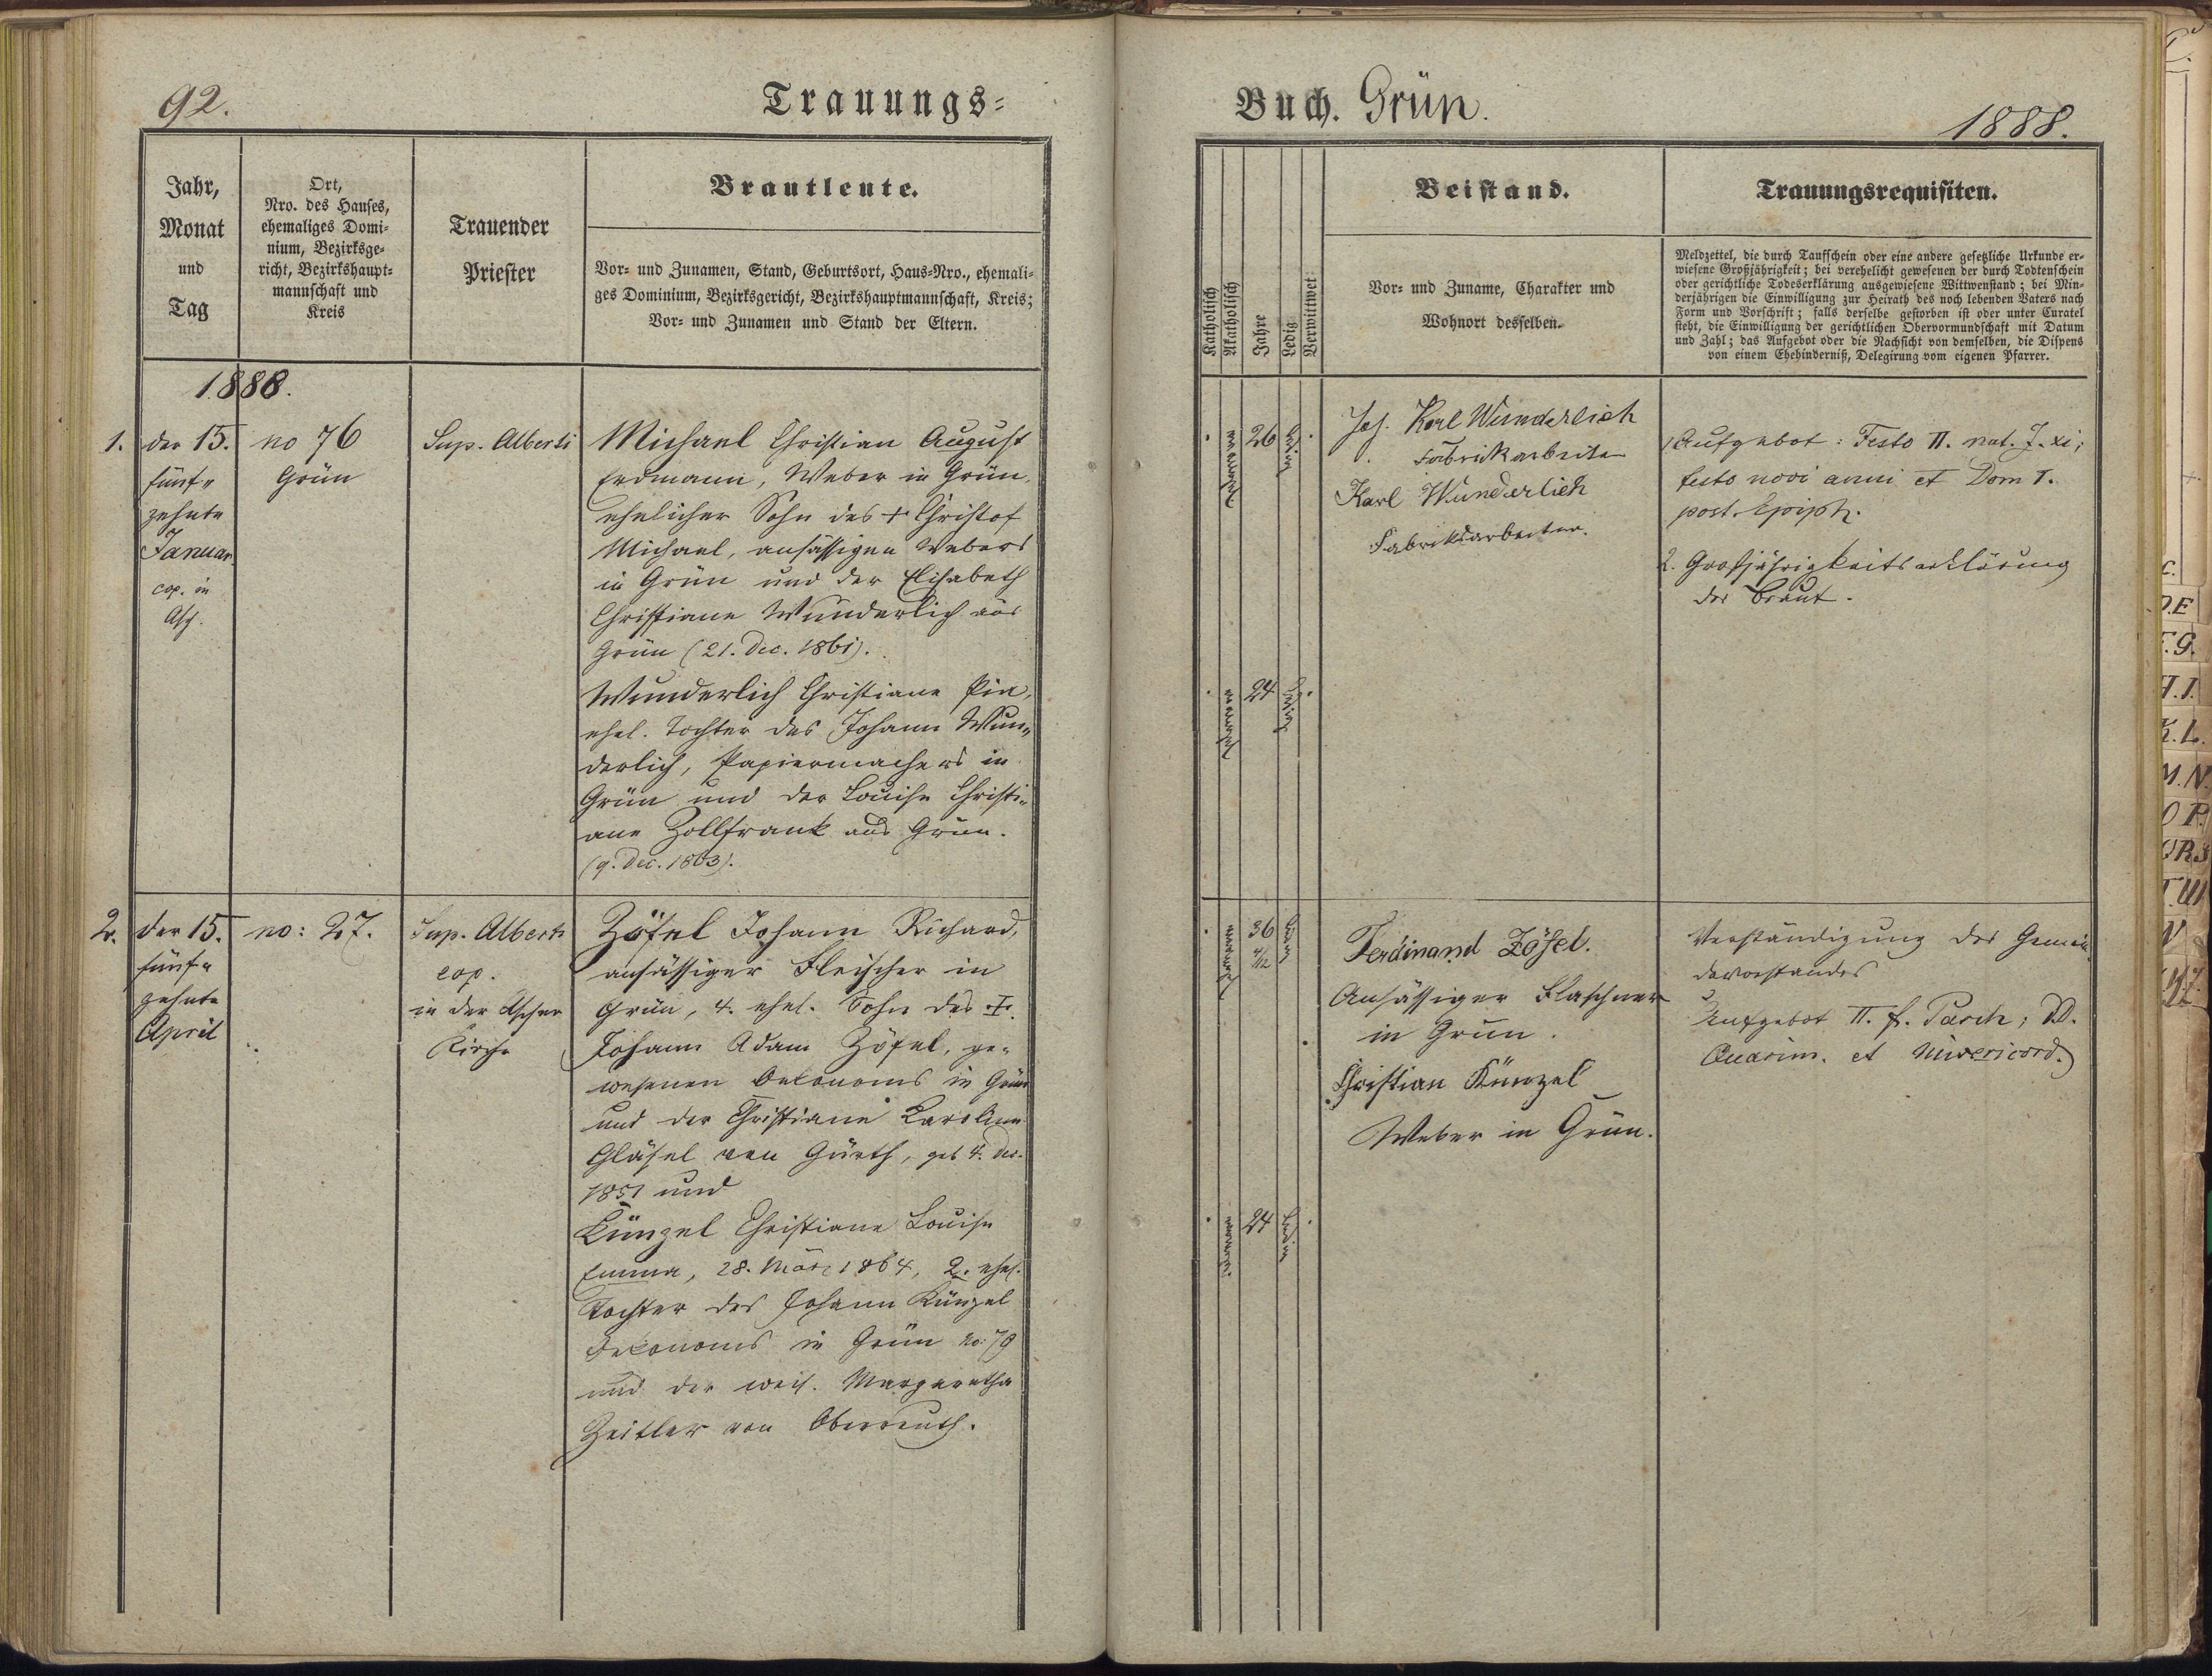 92.
Trauungs-
Jahr,
Monat
und
Tag
Ort,
Nro. des Hauses,
ehemaliges Domi-
nium, Bezirksge-
richt, Bezirkshaupt-
mannschaft und
Kreis
Trauender
Priester
Brautleute.
Vor- und Zunamen, Stand, Geburtsort, Haus-Nro., ehemali-
ges Dominium, Bezirksgericht, Bezirkshauptmannschaft, Kreis;
Vor- und Zunamen und Stand der Eltern.
1888.
1.
der 15.
fünf-
zehnte
Januar
cop. in
Asch.
no 76
Grün
Sup. Alberti
Michael Christian August
Erdmann, Weber in Grün,
ehelicher Sohn des + Christof
Michael, ansässigen Webers
in Grün und der Elisabeth
Christiane Wunderlich aus
Grün (21. Dec. 1861).
Wunderlich Christiane Pia,
ehel. Tochter des Johann Wun-
derlich, Papiermachers in
Grün und der Louise Christi-
ane Zollfrank aus Grün.
(9. Dec. 1863).
2.
der 15.
fünf-
zehnte
April
no: 27.
Sup. Alberti
cop.
in der Ascher
Kirche
Zöfel Johann Richard,
ansässiger Fleischer in
Grün, 4. ehel. Sohn des +
Johann Adam Zöfel, ge-
wesenen Oekonoms in Grün
und der Christiane Karoline
Gläsel von Gürth, geb 4. Dec.
1851 und
Künzel Christiane Louise
Emma, 28. März 1864, 2. ehel.
Tochter des Johann Künzel
Oekonoms in Grün no: 79
und der weil. Margaretha
Zeitler von Oberreuth.
Buch. Grün.
1888.
Katholisch
Akatholisch
Jahre
Ledig
Verwittwet
Beistand.
Vor- und Zuname, Charakter und
Wohnort desselben.
Trauungsrequisiten.
Meldzettel, die durch Taufschein oder eine andere gesetzliche Urkunde er-
wiesene Großjährigkeit; bei verehelicht gewesenen der durch Todtenschein
oder gerichtliche Todeserklärung ausgewiesene Wittwenstand; bei Min-
derjährigen die Einwilligung zur Heirath des noch lebenden Vaters nach
Form und Vorschrift; falls derselbe gestorben ist oder unter Curatel
steht, die Einwilligung der gerichtlichen Obervormundschaft mit Datum
und Zahl; das Aufgebot oder die Nachsicht von demselben, die Dispens
von einem Ehehinderniß, Delegirung vom eigenen Pfarrer.
26
ledig
Joh. Karl Wunderlich
Fabrikarbeiter
Karl Wunderlich
Fabriksarbeiter.
1 Aufgebot: Festo II. nat. J. xi;
festo novi anni et Dom I.
post. Epiph.
2. Großjährigkeitserklärung
der Braut.
24
ledig
36
4/12
Ferdinand Zöfel.
Ansässiger Flaschner
in Grün.
Christian Künzel
Weber in Grün.
Verständigung des Gemein
devorstandes
Aufgebot II. f. Pasch; DD.
Quasim. et Misericord.
24
ledig
C.
D.E
F.G.
H.I.
K.L.
M.N.
O P.